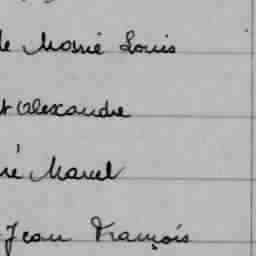 de Marié Louis
t Alexandre
ré Marcel
Jean François